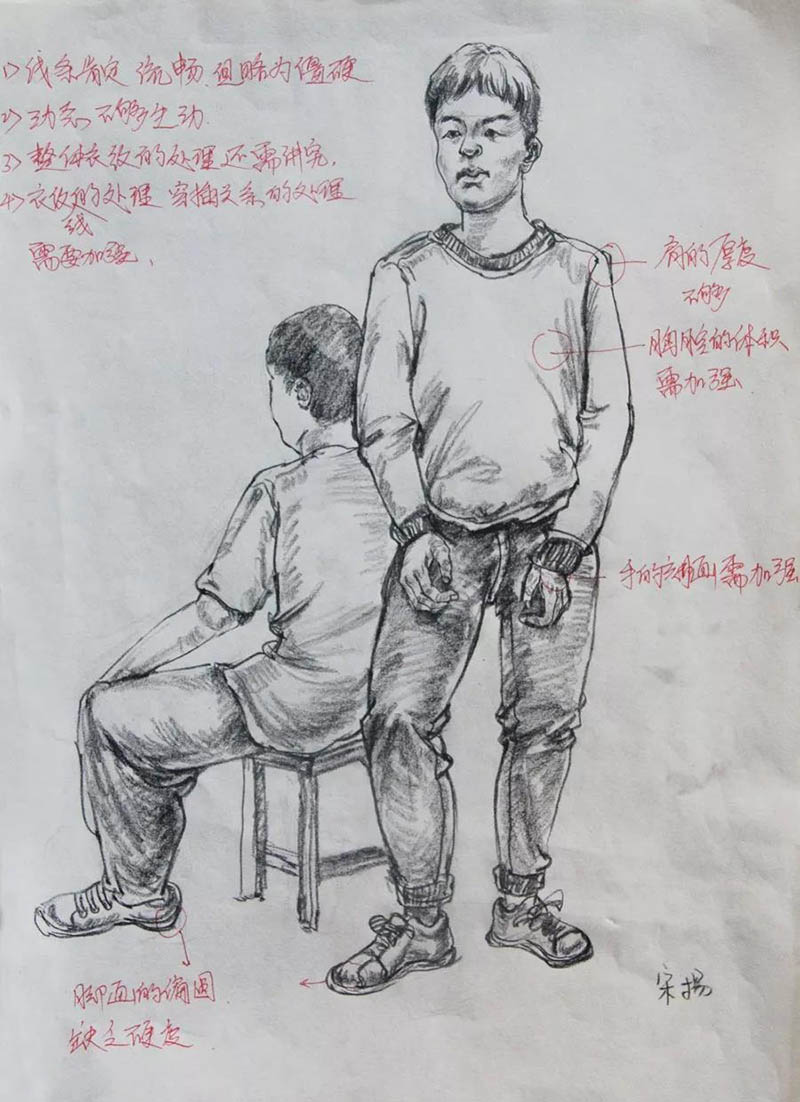 1) 线条肯定 流畅.但略为僵硬
2) 动态 不够生动.
3) 整体衣纹的处理还需讲究.
4) 衣纹的处理 穿插关系的处理
线
需要加强.
肩的厚度
不够
胸腔的体积
需加强
手的 需加强
脚面的偏圆
缺乏硬度
宋扬